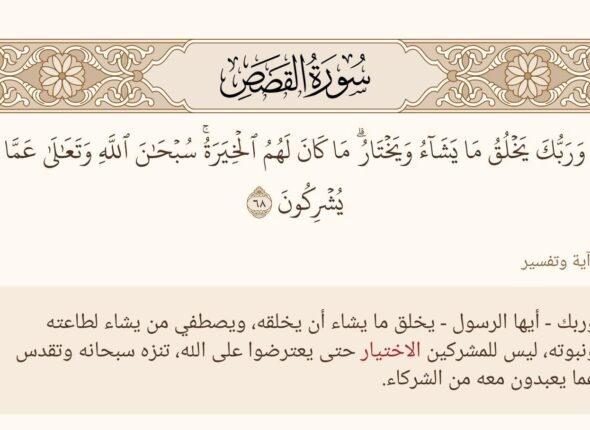 سُورَةُ القَصَصِ
وَرَبُّكَ يَخۡلُقُ مَا يَشَآءُ وَيَخۡتَارُۗ مَا كَانَ لَهُمُ ٱلۡخِيَرَةُۚ سُبۡحَٰنَ ٱللَّهِ وَتَعَٰلَىٰ عَمَّا
يُشۡرِكُونَ ٦٨
آية وتفسير
وربك - أيها الرسول - يخلق ما يشاء أن يخلقه، ويصطفي من يشاء لطاعته
ونبوته، ليس للمشركين الاختيار حتى يعترضوا على الله، تنزه سبحانه وتقدس
عما يعبدون معه من الشركاء.